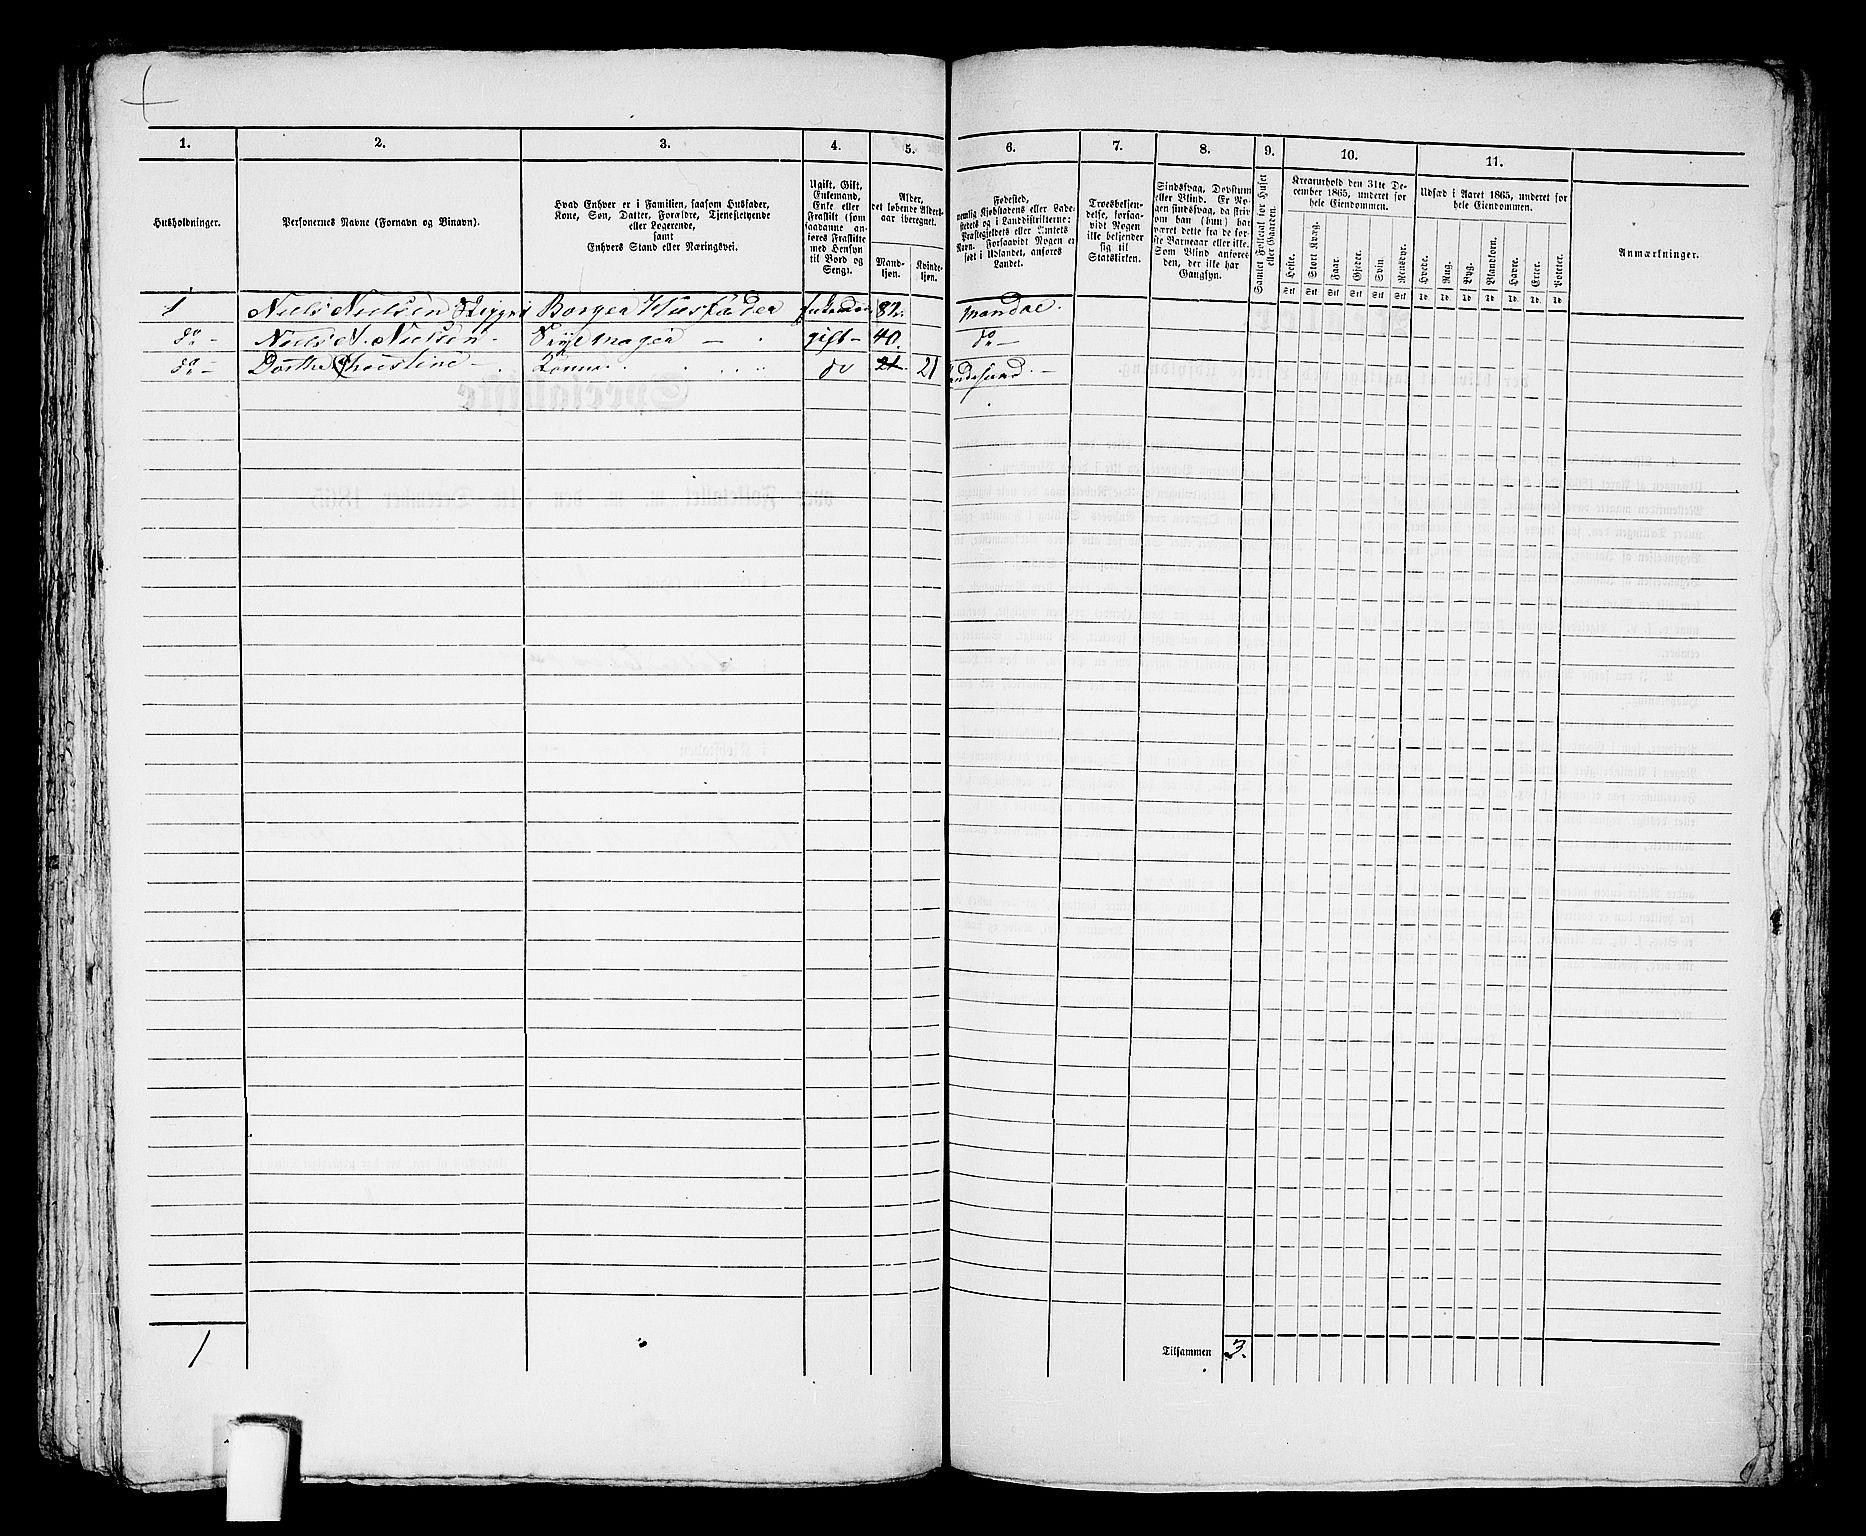 1. 2. 3. 4. 5. 6. 7. 8. 9. 10. 11.
Husholdninger.
Personernes Navne (Fornavn og Binavn).
Hvad Enhver er i Familien, saasom Husfader,
Kone, Søn, Datter, Forældre, Tjenestetyende
eller Logerende,
samt
Enhvers Stand eller Næringsvei.
Ugift, Gift,
Enkemand,
Enke eller
Fraskilt (som
saadanne an-
føres Fraskilte
med Hensyn
til Bord og
Seng).
Alder,
det løbende Alders-
aar iberegnet.
Mand-
kjøn.
Kvinde-
kjøn.
Fødested,
nemlig Kjøbstadens eller Lade-
stedets og i Landdistrikterne:
Præstegjeldets eller Amtets
Navn. Forsaavidt Nogen er
født i Udlandet, anføres
Landet.
Troesbekjen-
delse, forsaa-
vidt Nogen
ikke bekjender
sig til
Statskirken.
Sindssvag, Døvstum
eller Blind. Er No-
gen sindssvag, da skri-
ves om han (hun) har
været dette fra de før-
ste Barneaar eller ikke.
Som Blind anføres
den, der ikke har
Gangsyn.
Samlet Folketal for Huset
eller Gaarden.
Kreaturhold den 31te De-
cember 1865, underet for
hele Eiendommen.
Heste. Stort Kvæg. Faar. Gjeder. Svin. Rensdyr.
Stk Stk Stk Stk Stk Stk
Udsæd i Aaret 1865, underet for
hele Eiendommen.
Hvede. Rug. Byg. Blandkorn. Havre. Erter. Poteter.
Td. Td. Td. Td. Td. Td. Td.
Anmærkninger.
1 Niels Nielsen Borger Huusfader 82. Mandal.
do Niels N. Nielsen gift 40. do
do Dorthe Christine do 21 21
1 Tilsammen 3.